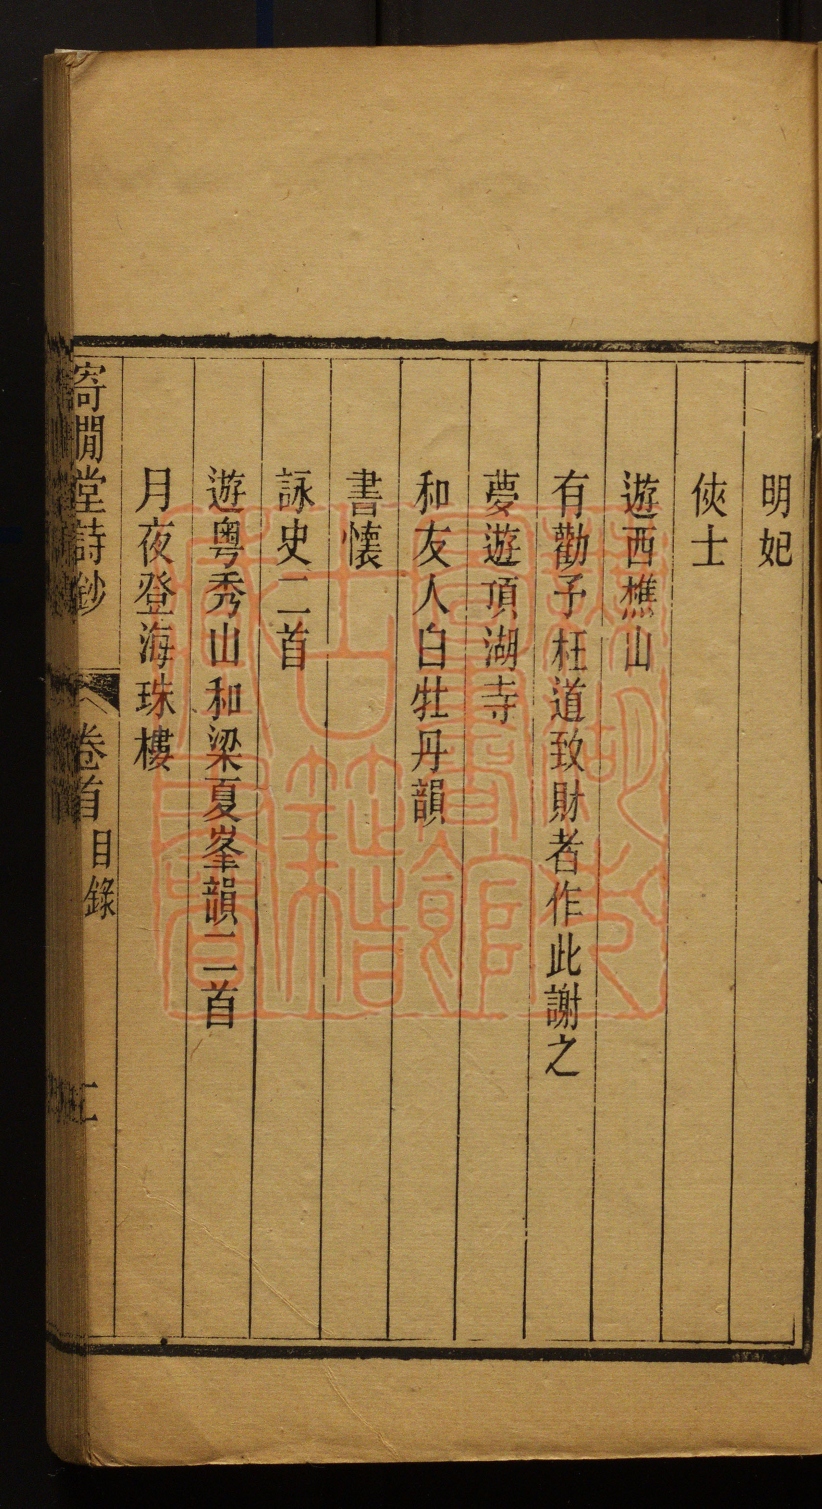 明妃
俠士
遊西樵山
有勸予枉道致財者作此謝之
夢遊頂湖寺
和友人白牡丹韻
書懷
詠史二首
遊粵秀山和梁夏峯韻二首
月夜登海珠樓
寄閒堂詩鈔
卷首
目錄